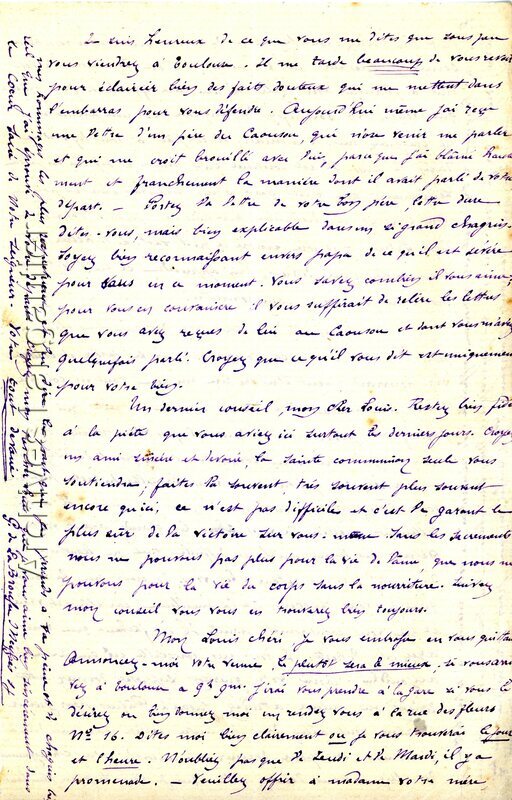 Je suis heureux de ce que vous me dites que sous peu
vous viendrez à Toulouse. Il me tarde beaucoup de vous revoir
pour éclaircir bien des faits douteux qui me mettent dans
l'embarras pour vous défendre. Aujourd'hui même j'ai reçu
une lettre d'un père du Caousou, qui n'ose venir me parler
et qui me croit brouillé avec lui, parce que j'ai blâmé
et franchement la manière dont il avait parlé de votre
départ. — Portez la lettre de votre bon père, lettre dure
dites-vous, mais bien explicable dans un si grand chagrin.
Soyez bien reconnaissant envers papa de ce qu'il est sévère
pour vous en ce moment. Vous savez combien il vous aime;
pour vous en convaincre il vous suffirait de relire les lettres
que vous avez reçues de lui au Caousou et dont vous m'avez
quelquefois parlé. Croyez que ce qu'il vous dit est uniquement
pour votre bien.
Un dernier conseil, mon cher Louis. Restez bien fidèle
à la piété que vous aviez ici surtout les derniers jours. Croyez
un ami sincère et dévoué, la sainte communion seule vous
soutiendra; faites la souvent, très souvent plus souvent
encore qu'ici, ce n'est pas difficile et c'est le garant le
plus sûr de la victoire sur vous-même. Sans les sacrements
nous ne pouvons pas plus pour la vie de l'âme, que nous ne
pouvons pour la vie du corps sans la nourriture. Suivez
mon conseil vous vous en trouverez bien toujours.
Mon Louis chéri je vous embrasse en vous quittant
Annoncez-moi votre venue, le plutôt sera le mieux. si vous arri
vez à Toulouse à 9h j'irai vous prendre à la gare si vous le
désirez ou bien donnez moi un rendez vous à la rue des fleurs
No 16. Dites moi bien clairement où je vous trouverai le jour
et l'heure. N'oubliez pas que le Jeudi et le Mardi, il y a
promenade. — Veuillez offrir à madame votre mère,
mes hommages les plus respectueux et lui dire la part que je prends à sa peine et le chagrin
réel que j'ai éprouvé de votre départ. mon cher Louis que je vous aime bien sincèrement dans
le Coeur Sacré de Notre Seigneur. Votre tout dévoué